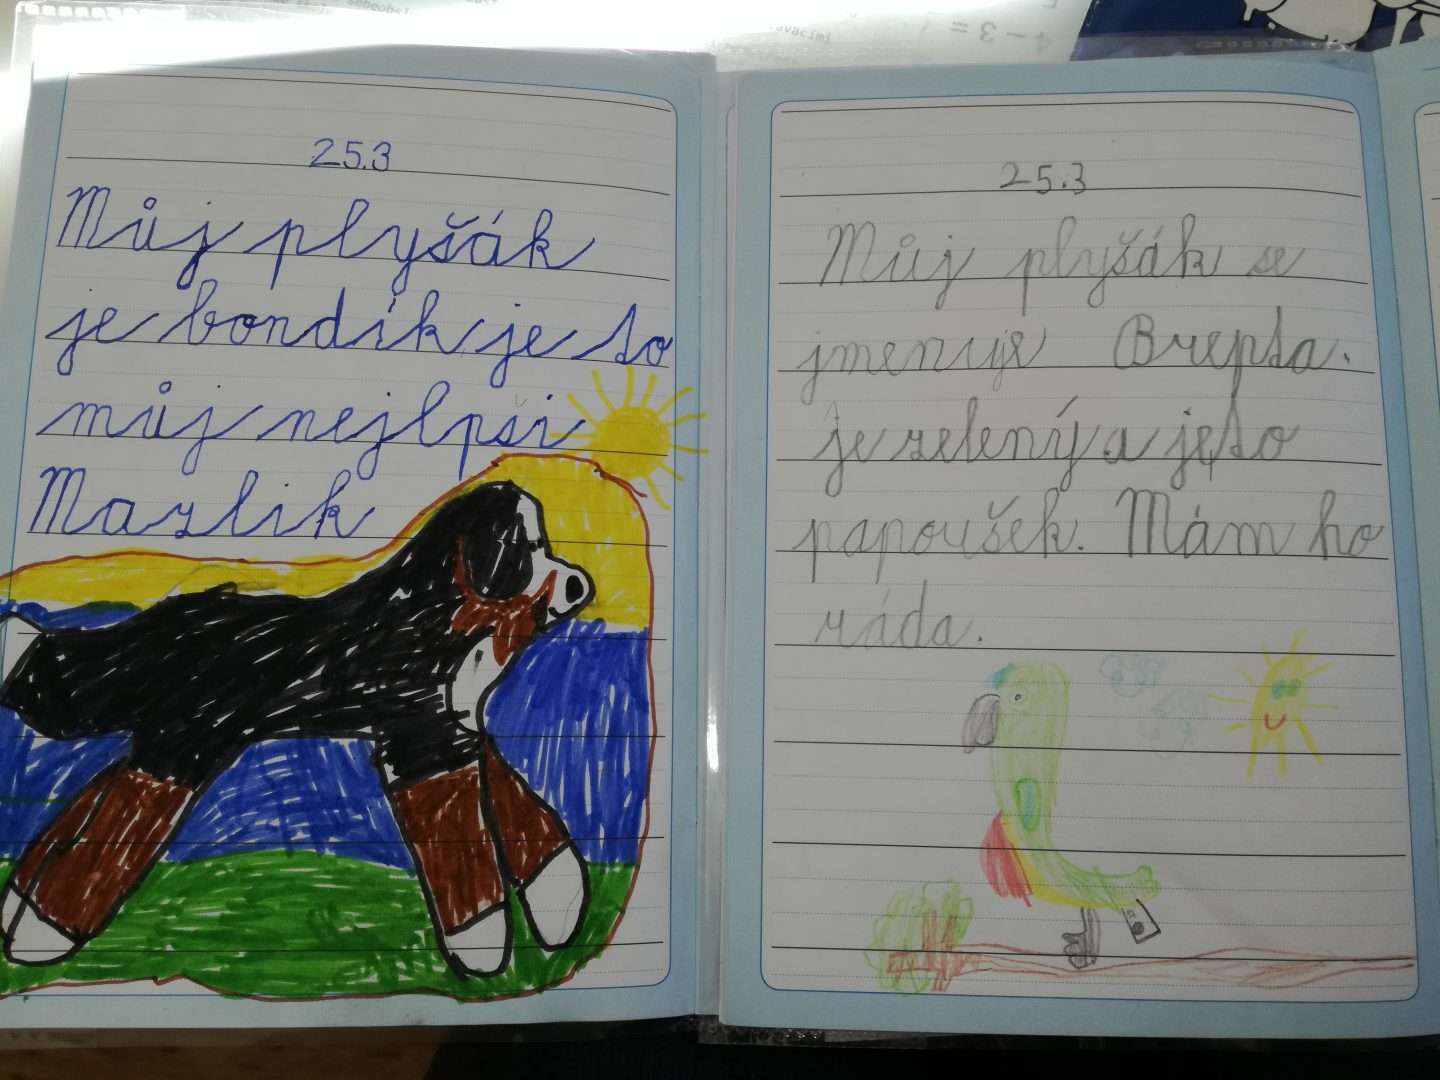 25.3
Můj plyšák
je bondík je to
můj nejlpší
Mazlik
25.3
Můj plyšák se
jmenuje Brepta.
je zelený a je to
papoušek. Mám ho
ráda.
4 - 3 =